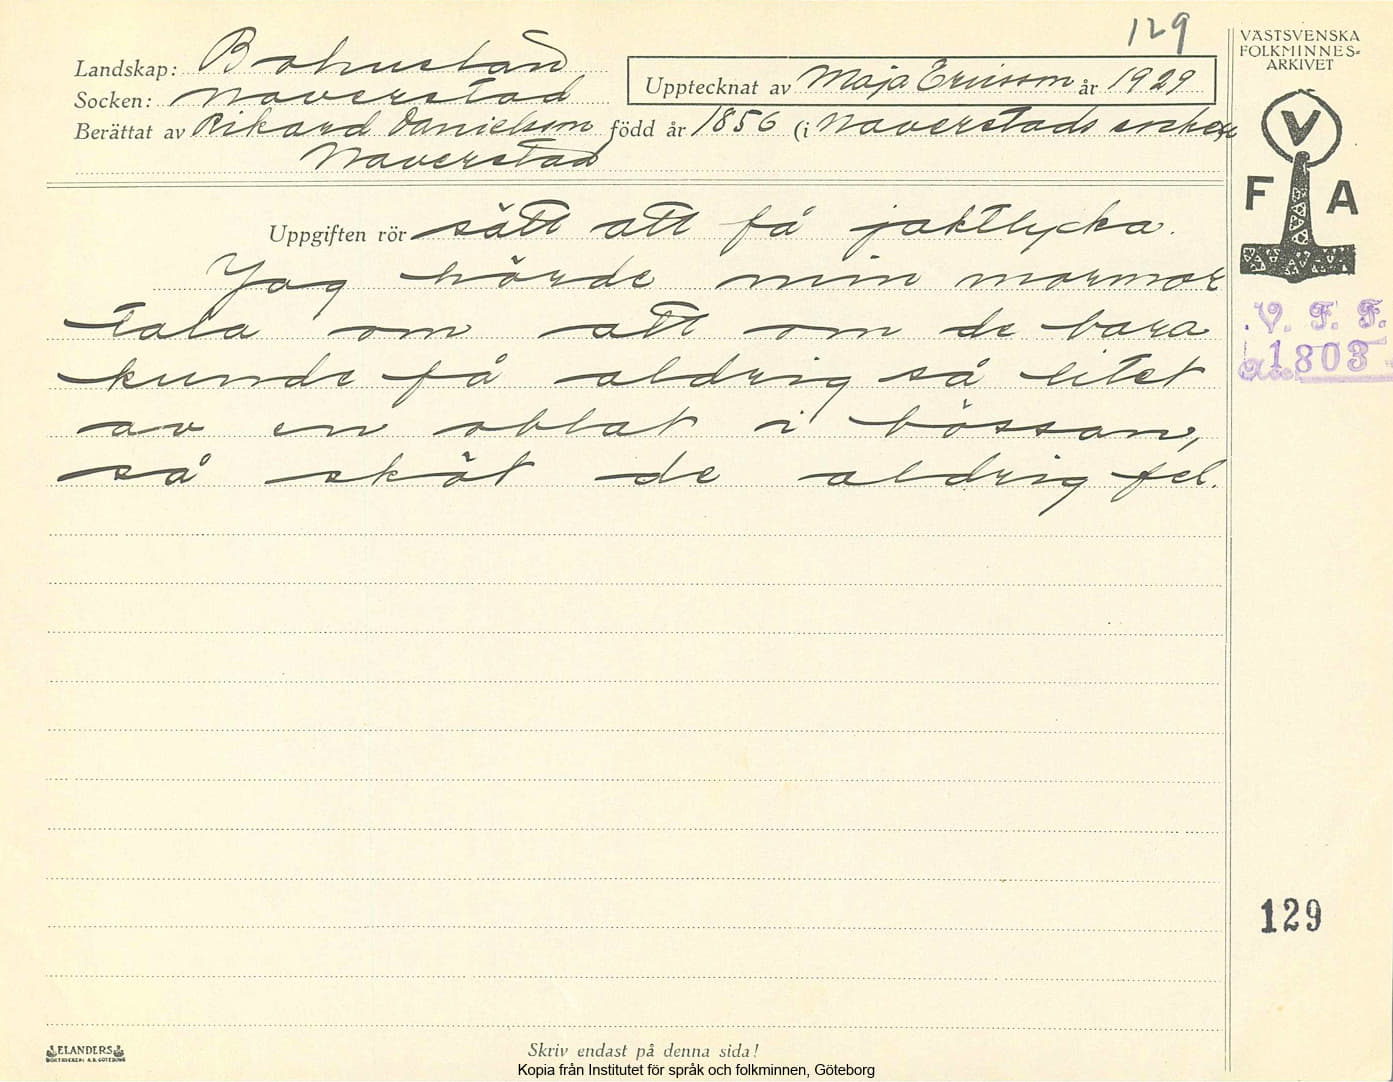 129
VÄSTSVENSKA
FOLKMINNES=
ARKIVET
Landskap: Bohuslän
Socken: Naverstad
Upptecknat av Maja Ericsson år 1929
Berättat av Rikard Danielsson född år 1856 (i Naverstads socken
Naverstad
V
F A
Uppgiften rör sätt att få jaktlycka.
Jag hörde min mormor
tala om att om de bara
kunde få aldrig så litet
av en oblat i bössan,
så sköt de aldrig fel.
V. F. F.
1803
129
ELANDERS
BOKTRYCKERI A.B. GÖTEBORG
Skriv endast på denna sida!
Kopia från Institutet för språk och folkminnen, Göteborg